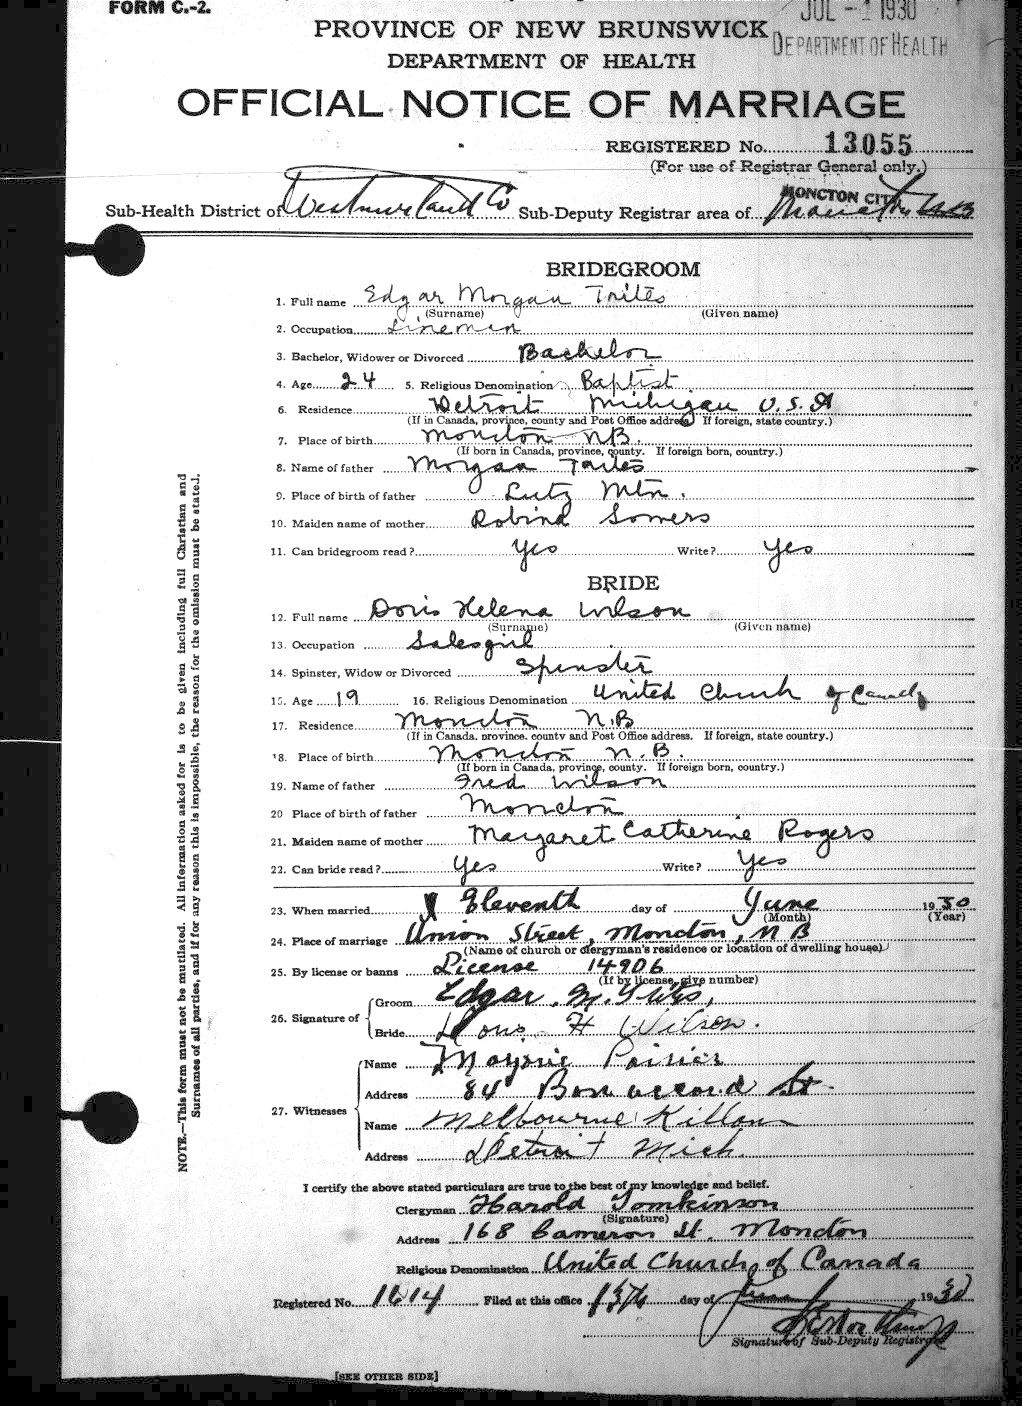 FORM C.-2.
JUL -1 1930
DEPARTMENT OF HEALTH
PROVINCE OF NEW BRUNSWICK
DEPARTMENT OF HEALTH
OFFICIAL NOTICE OF MARRIAGE
REGISTERED No. 13055
(For use of Registrar General only.)
MONCTON CITY
Sub-Health District of Westmorland Co Sub-Deputy Registrar area of Moncton N.B
BRIDEGROOM
1. Full name Edgar Morgan Trites
(Surname) (Given name)
2. Occupation Lineman
3. Bachelor, Widower or Divorced Bachelor
4. Age 24 5. Religious Denomination Baptist
6. Residence Detroit Michigan U.S.A
(If in Canada, province, county and Post Office address. If foreign, state country.)
7. Place of birth Moncton N.B.
(If born in Canada, province, county. If foreign born, country.)
8. Name of father Morgan Trites
9. Place of birth of father Lutz Mtn.
10. Maiden name of mother Robina Somers
11. Can bridegroom read? Yes Write? Yes
BRIDE
12. Full name Doris Helena Wilson
(Surname) (Given name)
13. Occupation Salesgirl
14. Spinster, Widow or Divorced Spinster
15. Age 19 16. Religious Denomination United Church of Canada
17. Residence Moncton N.B
(If in Canada, province, county and Post Office address. If foreign, state country.)
18. Place of birth Moncton N.B.
(If born in Canada, province, county. If foreign born, country.)
19. Name of father Fred Wilson
20 Place of birth of father Moncton
21. Maiden name of mother Margaret Catherine Rogers
22. Can bride read? Yes Write? Yes
23. When married Eleventh day of June 1930
(Month) (Year)
24. Place of marriage Union Street, Moncton, N B
(Name of church or clergyman's residence or location of dwelling house)
25. By license or banns License 14906
(If by license, give number)
26. Signature of
Groom Edgar. M. Trites,
Bride Doris H Wilson.
27. Witnesses
Name Marjorie Poirier
Address 84 Bonaccord St.
Name Melbourne Killam
Address Detroit Mich.
I certify the above stated particulars are true to the best of my knowledge and belief.
Clergyman Harold Tomkinson
(Signature)
Address 168 Cameron St. Moncton
Religious Denomination United Church of Canada
Registered No. 1614 Filed at this office 13th day of June 1930
Signature of Sub-Deputy Registrar
[SEE OTHER SIDE]
NOTE.—This form must not be mutilated. All information asked for is to be given including full Christian and
Surnames of all parties, and if for any reason this is impossible, the reason for the omission must be stated.